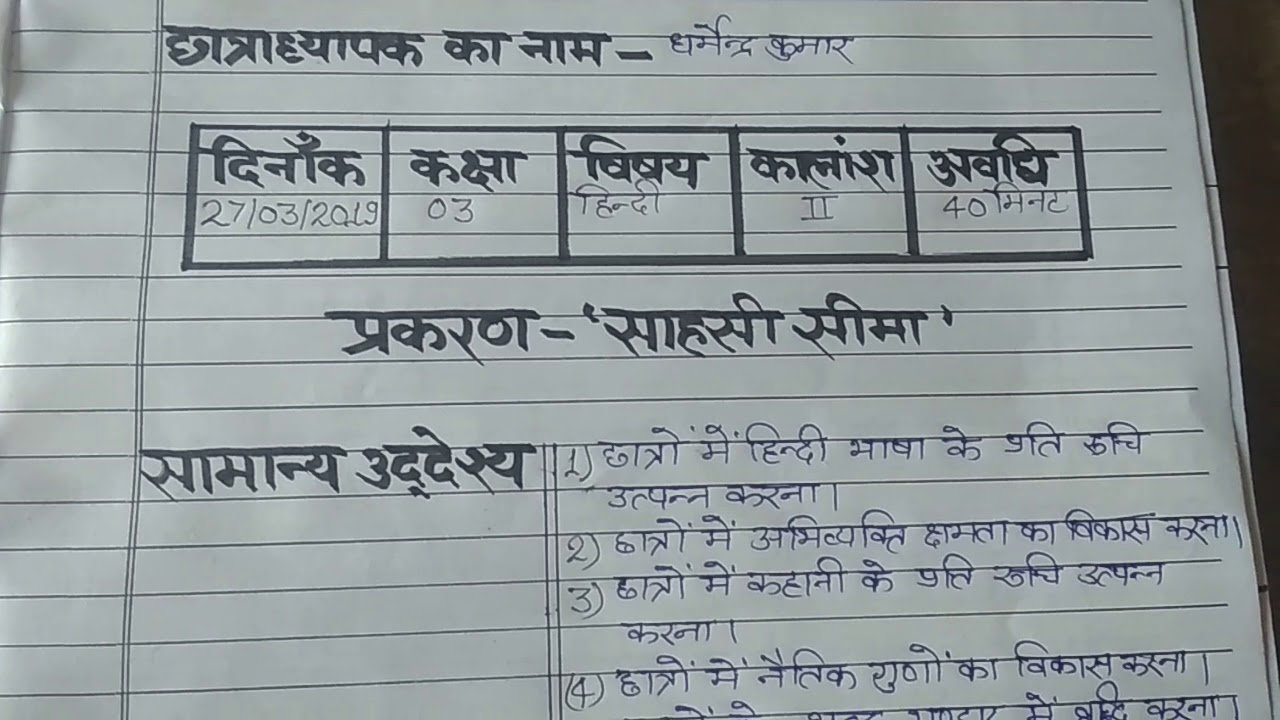 छात्राध्यापक का नाम – धर्मेन्द्र कुमार
दिनाँक कक्षा विषय कालांश अवधि
27/03/2019 03 हिन्दी II 40 मिनट
प्रकरण – 'साहसी सीमा'
सामान्य उद्देश्य 1) छात्रों में हिन्दी भाषा के प्रति रुचि
उत्पन्न करना।
2) छात्रों में अभिव्यक्ति क्षमता का विकास करना।
3) छात्रों में कहानी के प्रति रुचि उत्पन्न
करना।
(4) छात्रों में नैतिक गुणों का विकास करना।
में वृद्धि करना।